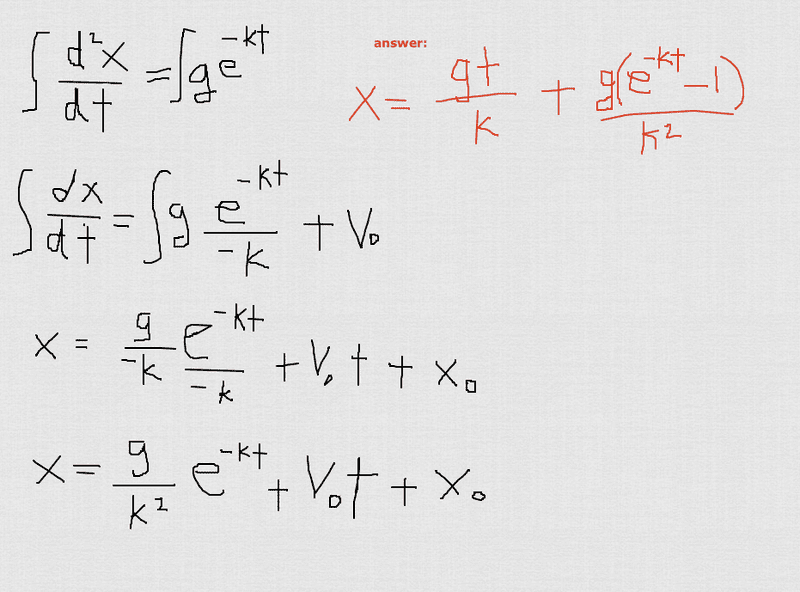 ∫ d²x/dt = ∫ge^-kt
answer:
x = gt/k + g(e^-kt - 1)/k²
∫ dx/dt = ∫g e^-kt/-k + V₀
x = g/-k e^-kt/-k + V₀ t + x₀
x = g/k² e^-kt + V₀t + x₀